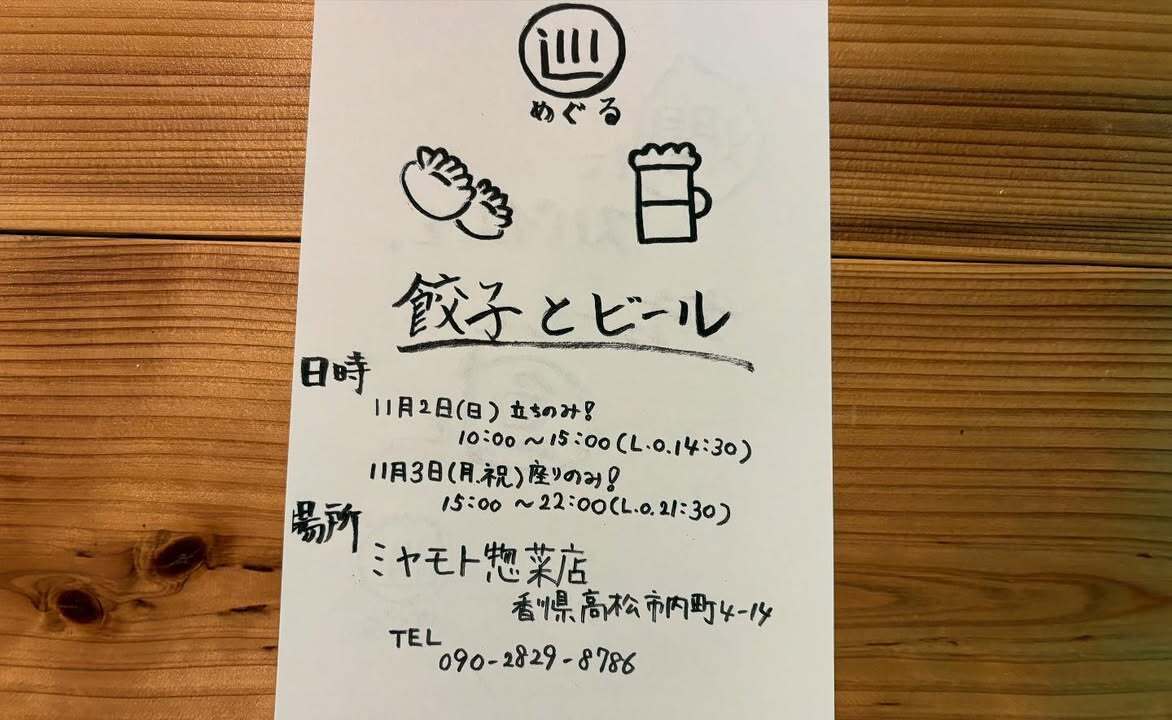 巡
めぐる
餃子とビール
日時
11月2日(日) 立ちのみ!
10:00 ~15:00(L.O.14:30)
11月3日(月.祝)座りのみ!
15:00 ~22:00(L.O.21:30)
場所
ミヤモト惣菜店
香川県高松市内町4-14
TEL
090-2829-8786